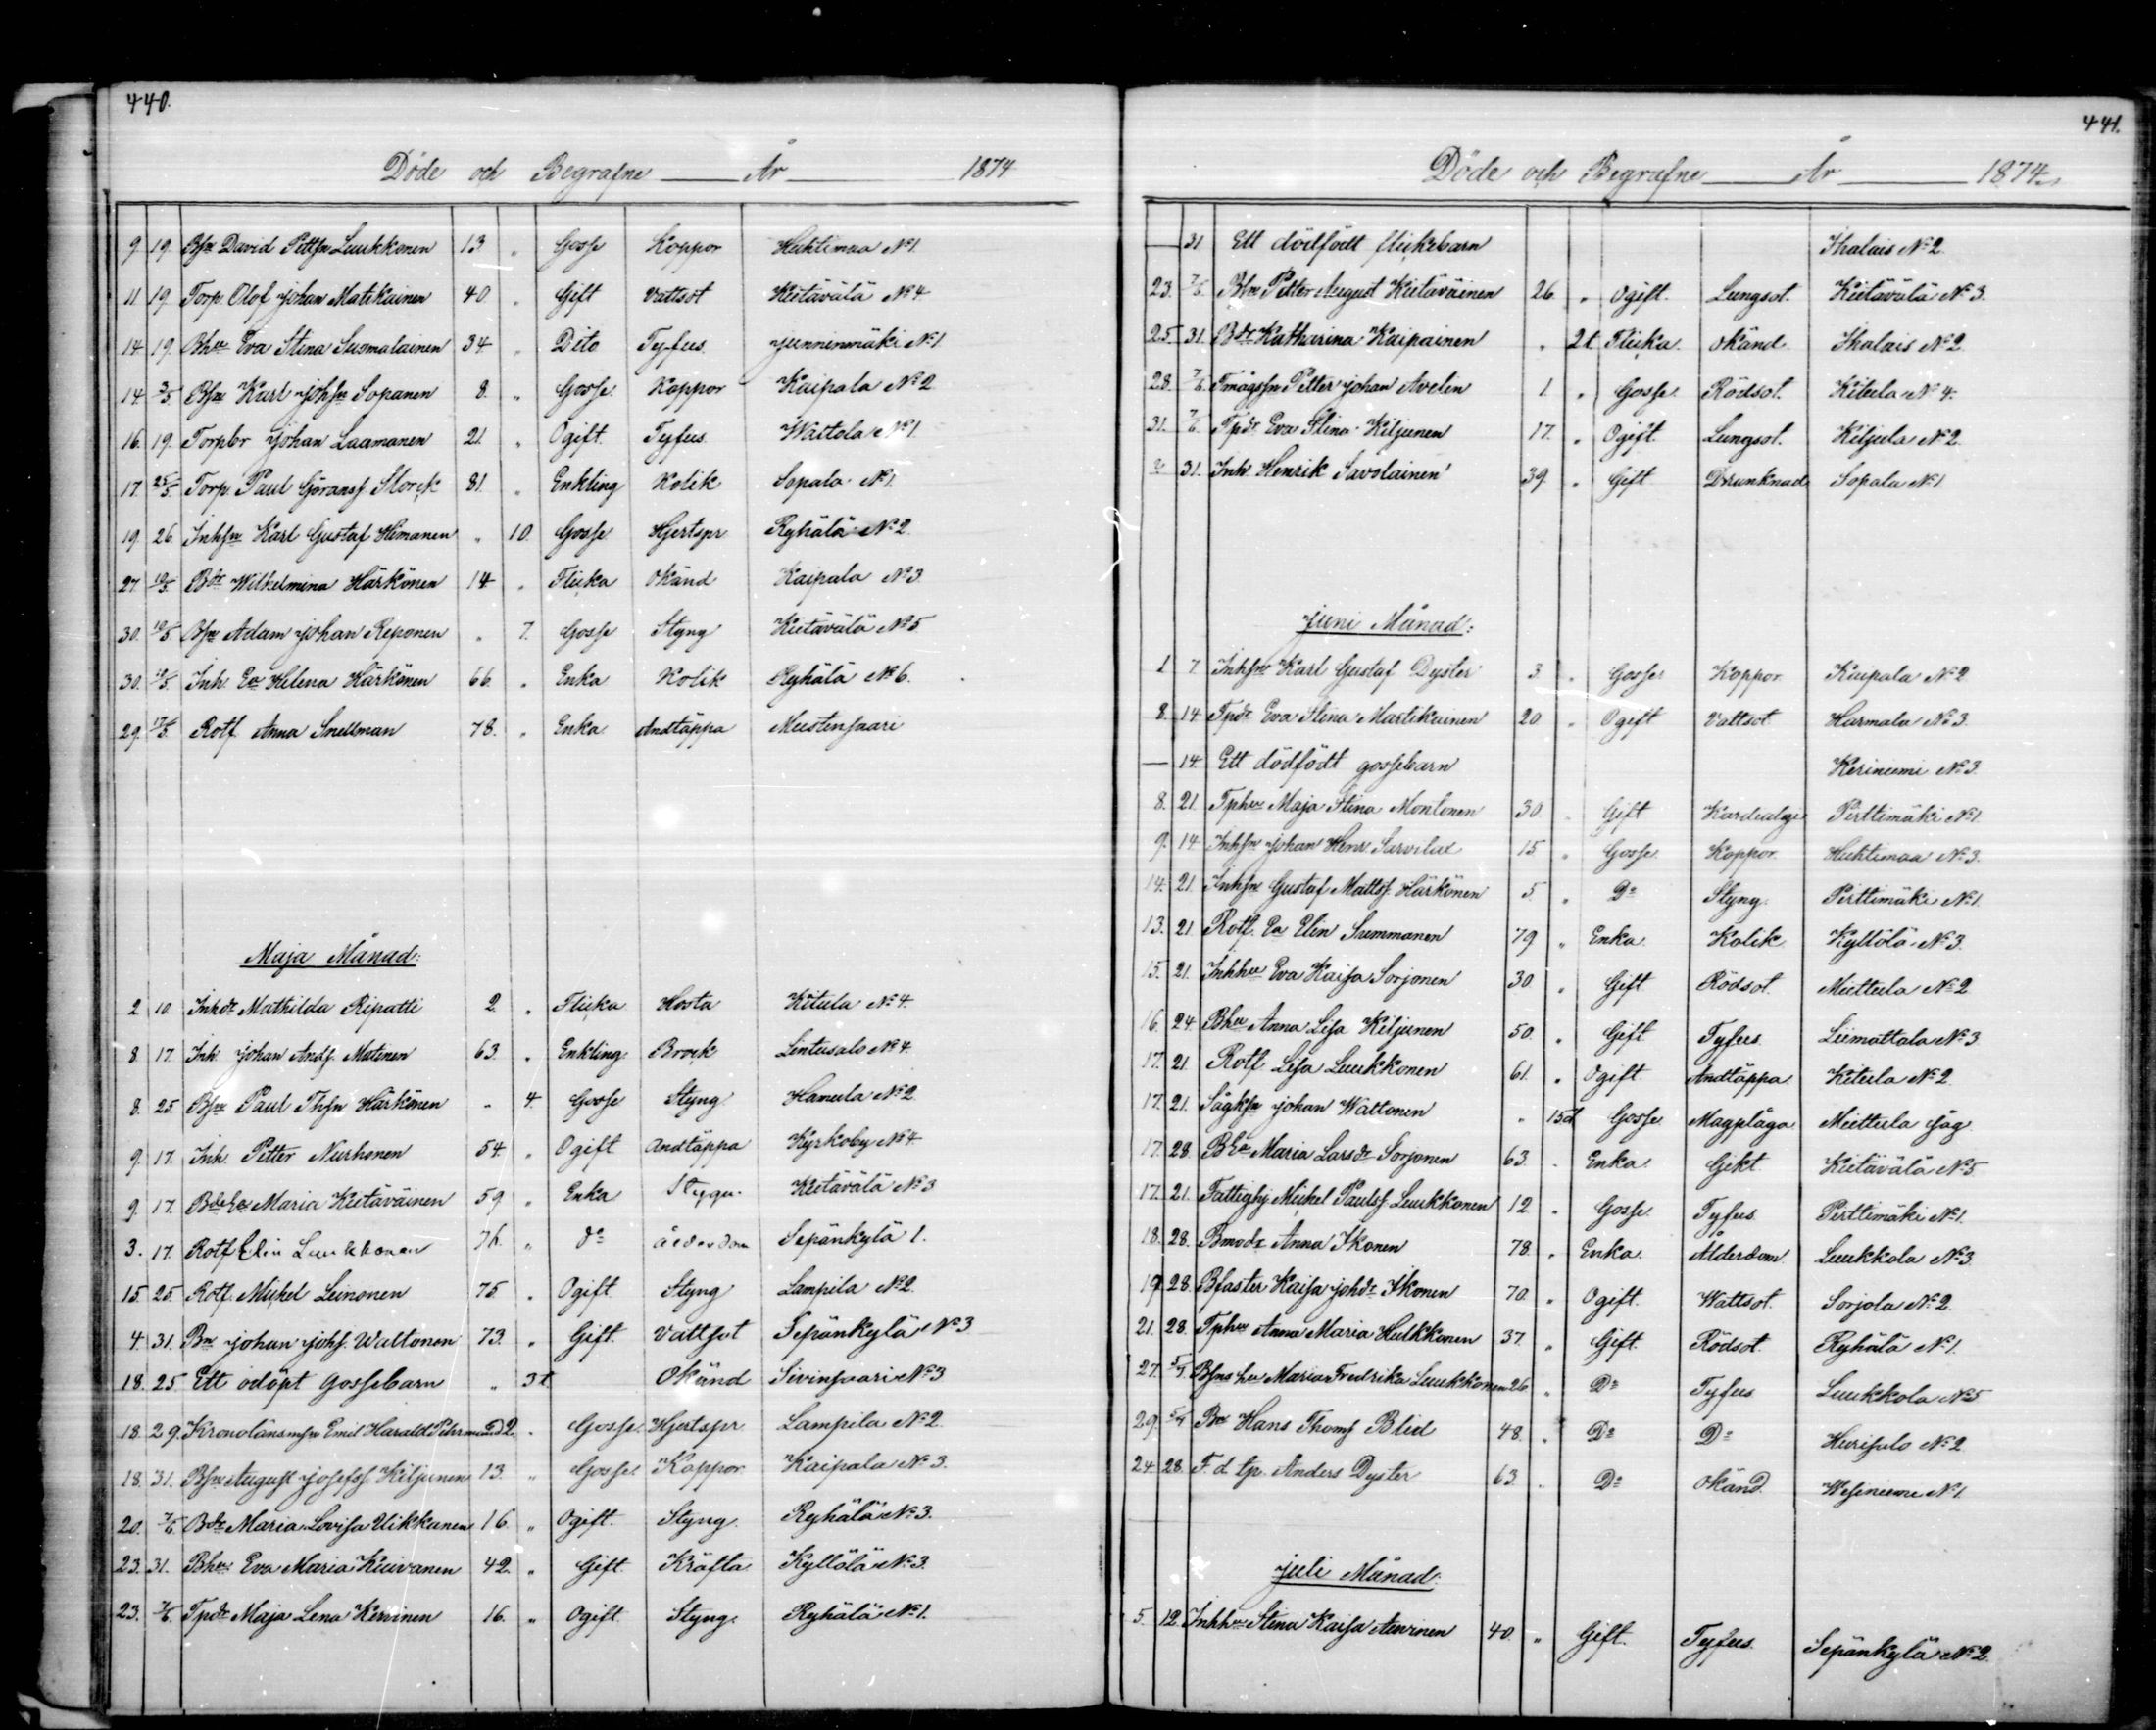 440.
Döde och Begrafne År 1874
9 19. Bsn David Pettsn Luukkonen 13 „ Gosse Koppor Huhtimaa No 1.
11 19 Torp. Olof Johan Matikainen 40 „ Gift Vattsot Kietävälä No 4.
14 19. Bhu Eva Stina Suomalainen 34 „ Dito Tyfus Junninmäki No 1
14. 3/5. Bsn Karl Johsn Sopanen 8. „ Gosse. Koppor Kaipala No 2
16. 19. Torpbr Johan Laamanen 21. „ Ogift. Tyfus. Wattola No 1.
17. 25/5. Torp. Paul Göranss. Storck 81. „ Enkling Kolik Sopala No 1.
19 26. Inhsn Karl Gustaf Himanen „ 10. Gosse Hjertspr. Ryhälä No 2.
27. 10/5. Bdr Wilhelmina Härkönen 14 „ Flicka Okänd Kaipala No 3.
30. 10/5 Bsn Adam Johan Reponen „ 7. Gosse Styng Kietävälä No 5.
30. 10/5. Inh. Ea Helena Härkönen 66. „ Enka Kolik Ryhälä No 6.
29. 17/5. Rotf. Anna Snellman 78. „ Enka Andtäppa Mustensaari
Maja Månad:
2 10. Inhdr Mathilda Ripatti 2. „ Flicka Hosta Kitula No 4.
8. 17. Inh Johan Ands. Matinen 63. „ Enkling Brock Lintusalo No 4.
8. 25. Bsn Paul Thsn Härkönen „ 4. Gosse Styng. Hamula No 2.
9. 17. Inh. Petter Nurhonen 54. „ Ogift Andtäppa Kyrkoby No 4
9. 17. Bdea Maria Kietäväinen 59 „ Enka Styng. Kietävälä No 3
3. 17. Rotf Elin Luukkonen 76. „ do ålderdom Sepänkylä 1.
15. 25. Rotf. Mickel Leinonen 75. „ Ogift Styng Lampila No 2.
4. 31. Bn Johan Johs. Waltonen 73. „ Gift. Vattsot Sepänkylä No 3
18. 25 Ett odöpt Gossebarn „ 3t Okänd Sivinsaari No 3
18. 29. Kronolänsmsn Emil Harald 2. „ Gosse. Hjertspr Lampila No 2.
18. 31. Bsn August Josefss. Kiljunen 13. „ Gosse. Koppor Kaipala No 3.
20. 7/6. Bdr Maria Lovisa Ukkanen 16. „ Ogift. Styng. Ryhälä No 3.
23. 31. Bhu Eva Maria Kuivanen 42. „ Gift. Kräfta Kyllölä No 3.
23. 7/6. Tpdr Maja Lena Kervinen 16. „ Ogift. Styng. Ryhälä No 1.
441.
Döde och Begrafne År 1874.
— 31 Ett dödfödt flickebarn Ihalais No 2.
23. 7/6. Bsn Petter August Kietäväinen 26. „ Ogift. Lungsot. Kietävälä No 3.
25 31. Bdr Katharina Kaipainen „ 2t Flicka. Okänd. Ihalais No 2
28. 7/6. Petter Johan Avelin 1. „ Gosse. Rödsot. Kitula No 4.
31. 7/6. Tpdr Eva Stina Kiljunen 17. „ Ogift. Lungsot. Kiljula No 2.
„ 31. Inh. Henrik Savolainen 39. „ Gift Drunknad Sopala No 1
Juni Månad:
1 7 Inhsn Karl Gustaf Dyster 3. „ Gosse Koppor. Kaipala No 2
8. 14 Tpdr Eva Stina Martikainen 20 „ Ogift Vattsot Harmala No 3.
— 14. Ett dödfödt gossebarn Keriniemi No 3.
8. 21. Tphu Maja Stina Montonen 30. „ Gift Kardialgi Perttimäki No 1.
9. 14 Inhsn Johan Henr. Sarvilax 15 „ Gosse. Koppor. Huhtimaa No 3.
14. 21. Inhsn Gustaf Mattss. Härkönen 5. „ Do Styng. Perttimäki No 1.
13. 21. Rotf. Ea Elin Summanen 79 „ Enka. Kolik. Kyllölä No 3.
15. 21. Inhhu Eva Kaisa Sorjonen 30. „ Gift. Rödsot. Muttula No 2
16. 24. Bhu Anna Lisa Kiljunen 50. „ Gift. Tyfus. Liimattala No 3
17. 21. Rotf Lisa Luukkonen 61. „ Ogift. Andtäppa. Kitula No 2.
17. 21. Sågksn Johan Waltonen „ 15d Gosse Magplåga Muttula såg.
17. 28. BEa Maria Larsdr Sorjonen 63. „ Enka. Gikt. Kietävälä No 5
17. 21. Fattighj Mickel Paulss. Luukkonen 12. „ Gosse. Tyfus Perttimäki No 1.
18. 28. Bmodr Anna Ikonen 78. „ Enka. Ålderdom. Luukkola No 3.
19 28. Bfaster Kaisa Johdr Ikonen 70. „ Ogift. Wattsot. Sorjola No 2.
21. 28. Tphu Anna Maria Hulkkonen 37. „ Gift. Rödsot. Ryhälä No 1.
27. 5/7. Bsns hu Maria Fredrika Luukkonen 26 „ Do Tyfus Luukkola No 5
29. 5/7. Bn Hans Thoms Blid 48. „ Do Do Hurisalo No 2.
24. 28. F. d. tp. Anders Dyster 63. „ Do Okänd. No 1.
Juli Månad:
5. 12. Inhhu Stina Kaisa Auvinen 40. „ Gift. Tyfus. Sepänkylä No 2